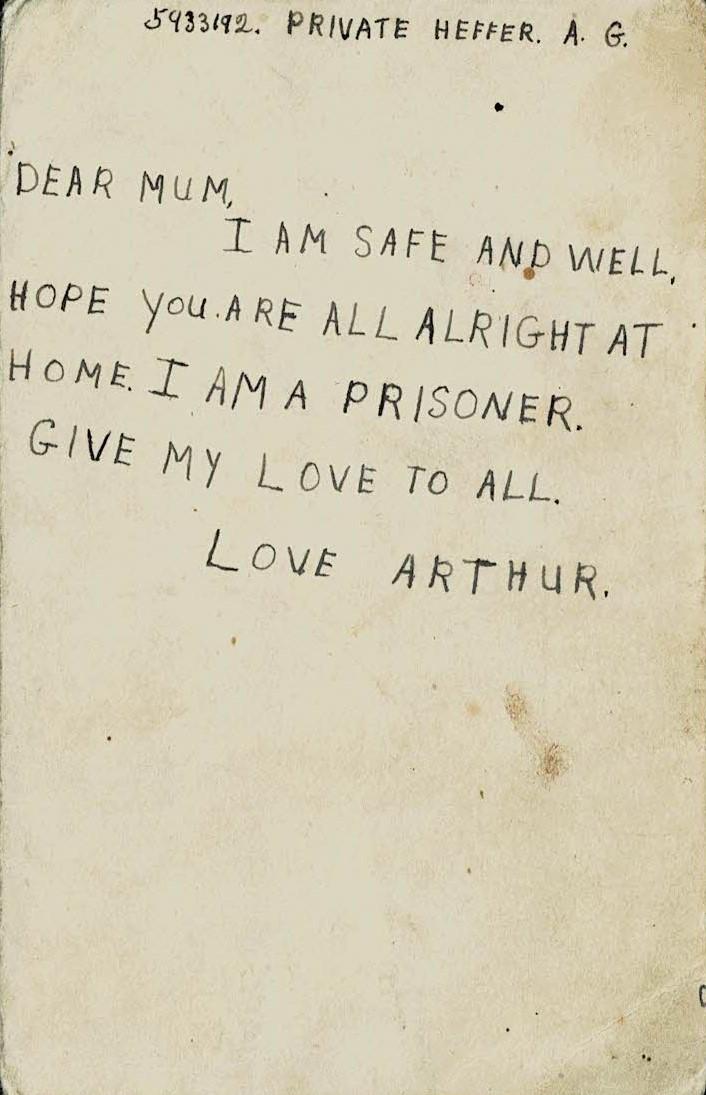 5933192. PRIVATE HEFFER. A. G.
DEAR MUM,
I AM SAFE AND WELL,
HOPE YOU.ARE ALL ALRIGHT AT
HOME. I AM A PRISONER.
GIVE MY LOVE TO ALL.
LOVE ARTHUR.